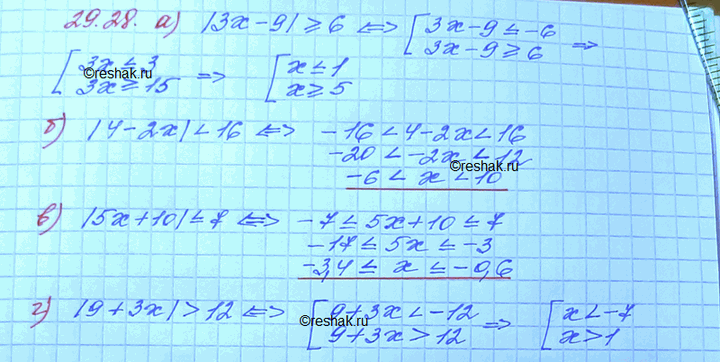 29.28. а) |3x-9|≥6 <=> [3x-9≤-6
3x-9≥6 =>
[3x≤3
3x≥15 => [x≤1
x≥5
©reshak.ru
б) |4-2x|<16 <=> -16<4-2x<16
-20<-2x<12
©reshak.ru
-6<x<10
в) |5x+10|≤7 <=> -7≤5x+10≤7
-17≤5x≤-3
-3,4≤x≤-0,6
г) |9+3x|>12 <=> [9+3x<-12
9+3x>12 => [x<-7
x>1
©reshak.ru